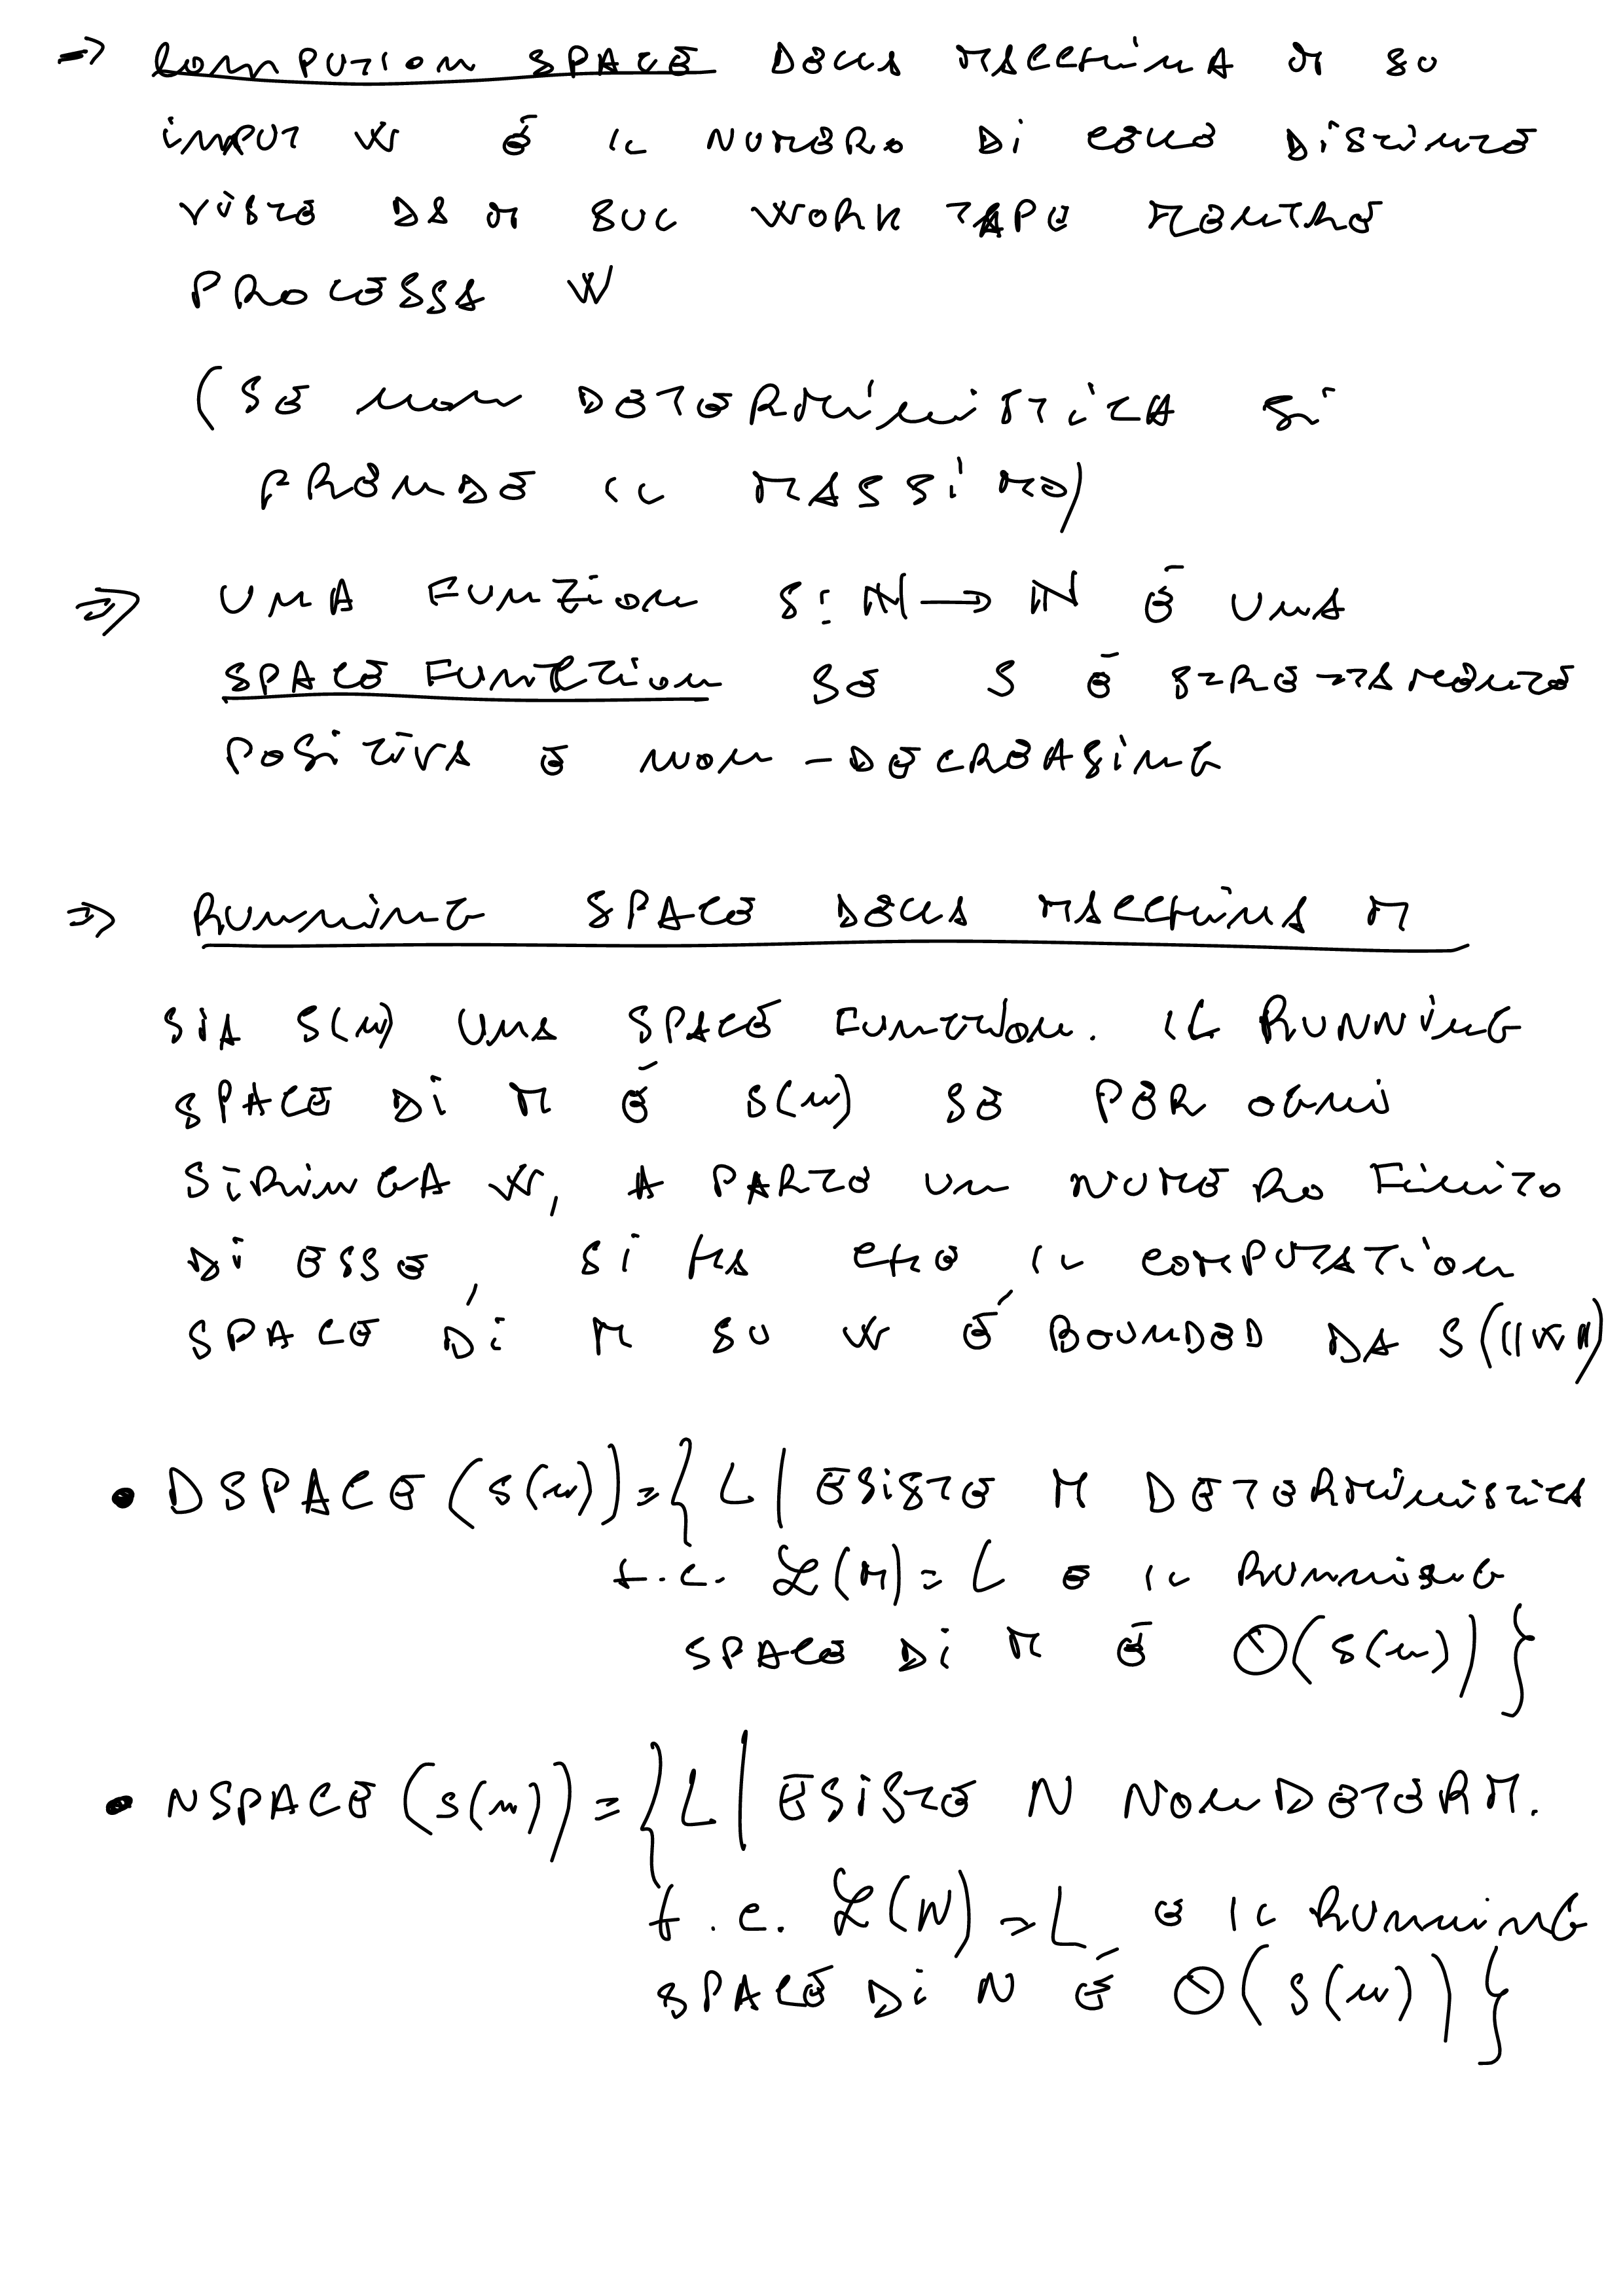 → COMPUTION SPACE DELLA MACCHINA M SU
INPUT W È IL NUMERO DI CELLE DISTINTE
VISTE DA M SUL WORK TAPE MENTRE
PROCESSA W
(SE NON DETERMINISTICA SI
PRENDE IL MASSIMO)
⇒ UNA FUNZION S: ℕ → ℕ È UNA
SPACE FUNCTION SE S È STRETTAMENTE
POSITIVA E NON-DECREASING
⇒ RUNNING SPACE DELLA MACCHINA M
SIA S(n) UNA SPACE FUNCTION. IL RUNNING
SPACE DI M È S(n) SE PER OGNI
STRINGA W, A PARTE UN NUMERO FINITO
DI ESSE, SI HA CHE IL COMPUTATION
SPACE DI M SU W È BOUNDED DA S(||W||)
• DSPACE(S(n)) = { L | ESISTE M DETERMINISTICA
t.c. ℒ(M) = L E IL RUNNING
SPACE DI M È O(S(n)) }
• NSPACE(S(n)) = { L | ESISTE N NONDETERM.
t.c. ℒ(N) = L E IL RUNNING
SPACE DI N È O(S(n)) }